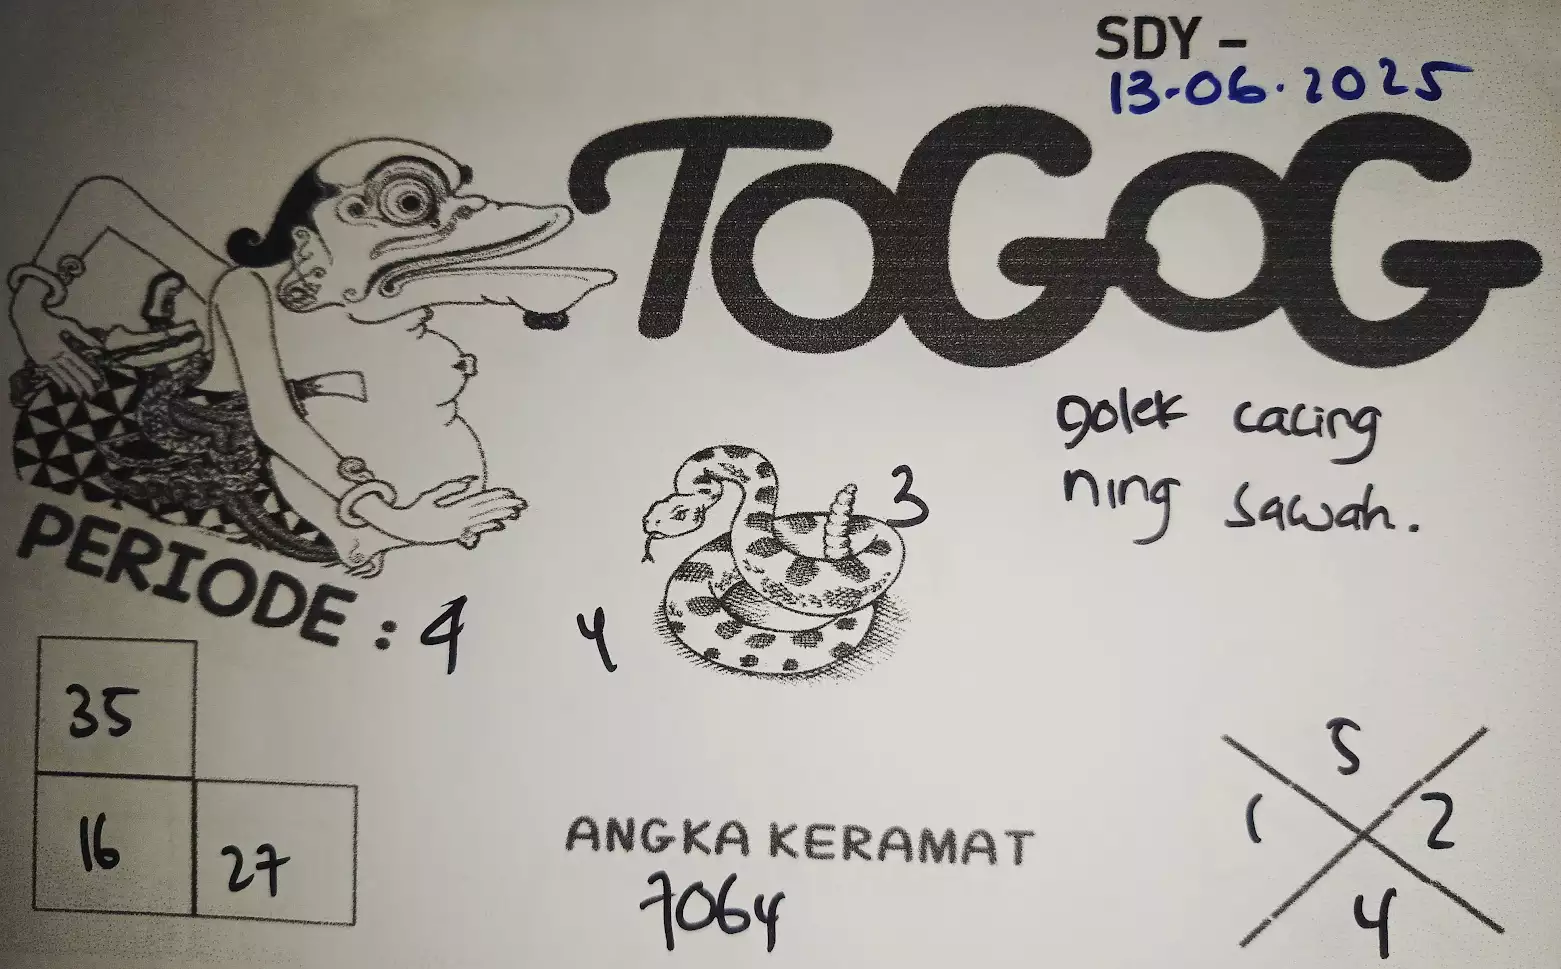 SDY -
13-06.2025
TOGOG
golek cacing
ning sawah.
3
PERIODE : 4
4
35
16
27
ANGKA KERAMAT
7064
5
1 2
4